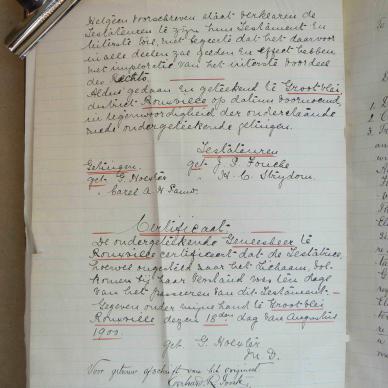 Hetgeen voorschreven staat verklaren de
Testateuren te zijn hun Testament en
uiterste wil, met begeerte dat het daarvoor
in alle deelen zal gelden en effect hebben
met imploratie van het uiterste voordeel
des Rechts.
Aldus gedaan en geteekend te Grootvlei
district Rouxville op datum voornoemd
in tegenwoordigheid der onderstaande
mede ondergeteekende getuigen.
Testateuren
Getuigen get J. P. Fouche
get G. Hoexter " H. C. Strydom
" Carel A. H.
Certificaat
De ondergeteekende Geneesheer te
Rouxville certificeert dat de Testatrice,
hoewel ongesteld naar het lichaam, vol-
komen bij haar verstand was ten dage
van het passeren van dit Testament.
Gegeven onder mijne hand te Grootvlei
Rouxville dezen 18den dag van Augustus
1900.
get. G. Hoexter
M. D.
Voor getrouw afschrift van het origineel